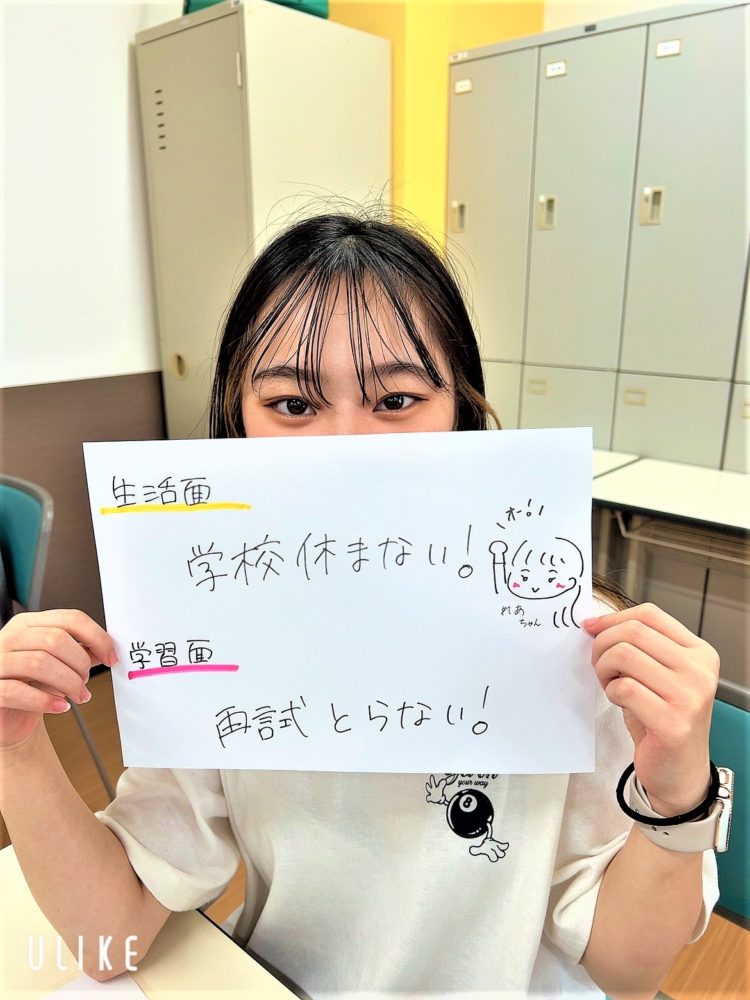 生活面
学校休まない!
オー!!
れあ
ちゃん
学習面
再試とらない!
your way
8
ULIKE